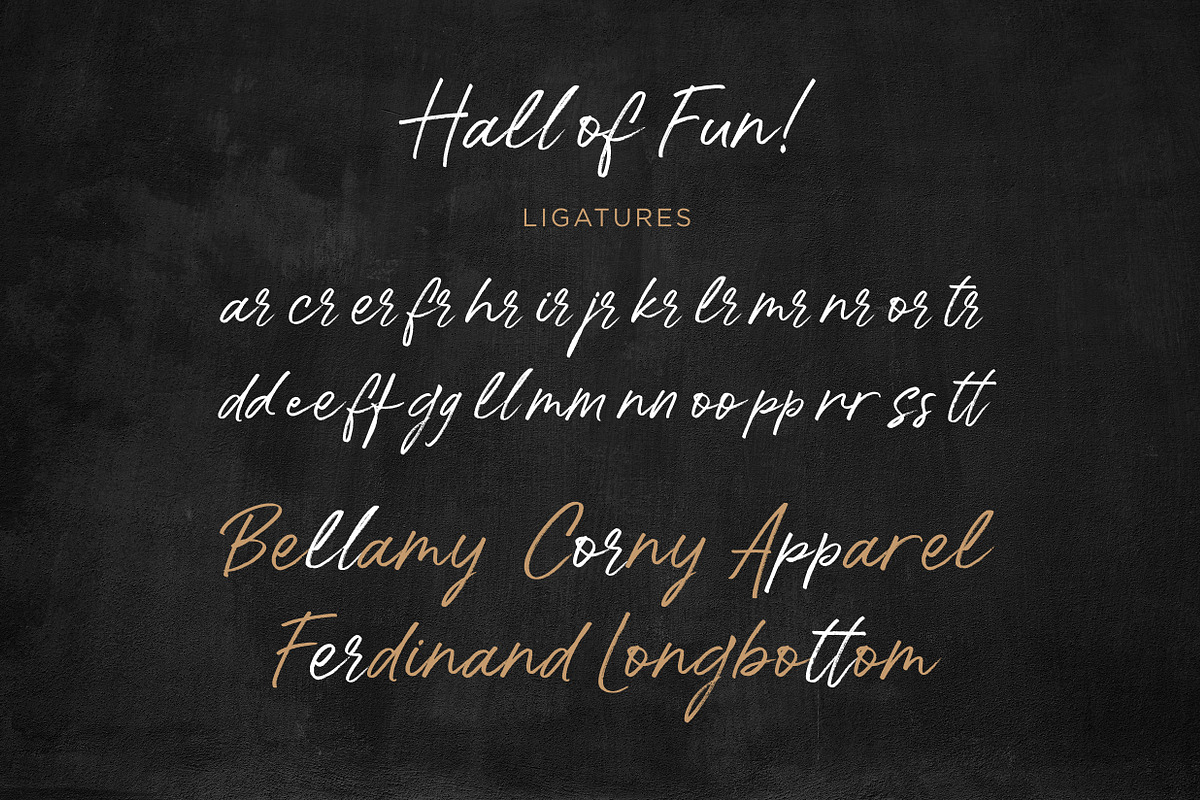 Hall of Fun!
LIGATURES
ar cr er fr hr ir jr kr lr mr nr or tr
dd ee ff gg ll mm nn oo pp rr ss tt
Bellamy Corny Apparel
Ferdinand Longbottom